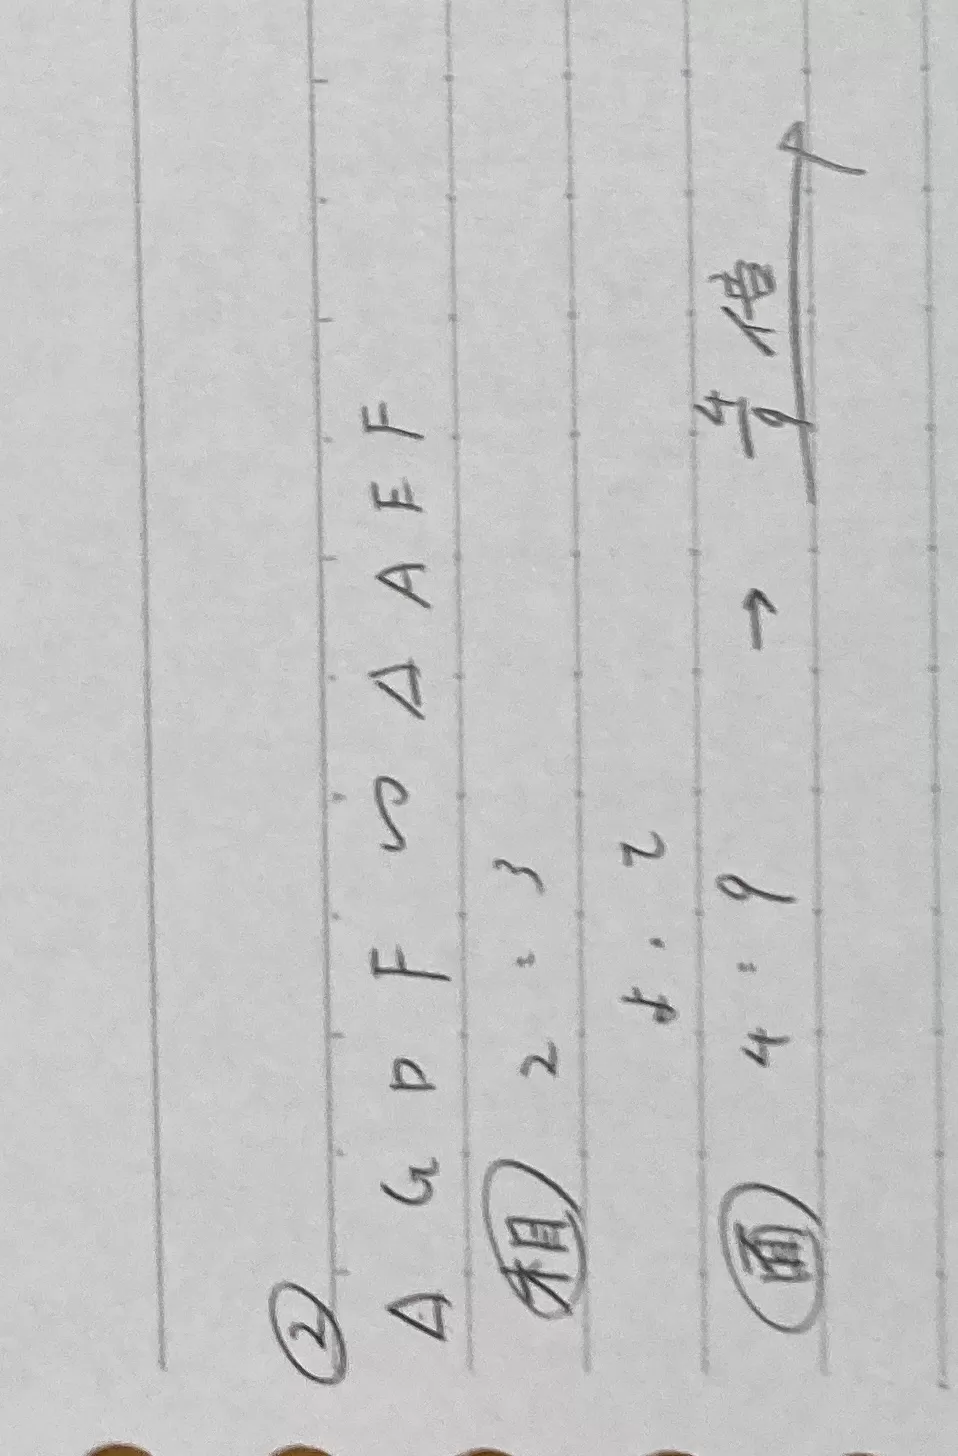 ②
△GDF∽△AEF
相 2:3
より
面 4:9 → 4/9倍